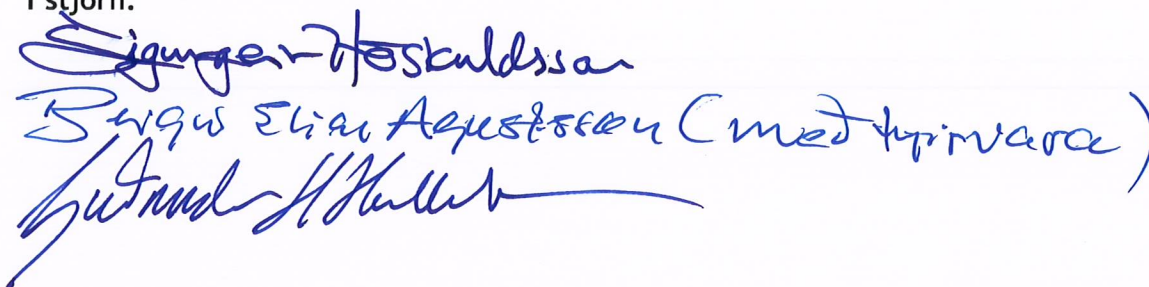 Í stjórn:
Sigurgeir Höskuldsson
Bergur Elías Ágústsson (með fyrirvara)
Guðmundur H